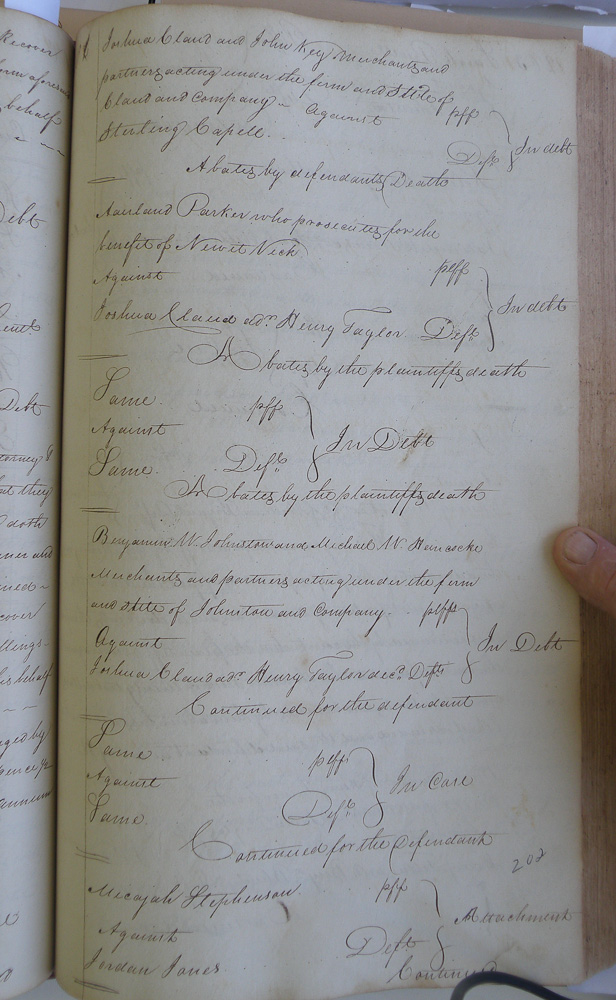 Recover
behalf
Debt
Debt
torney
at they
doth
ner and
ined
cover
llings
his behalf
ged by
pence p
annum
Joshua Claud and John Key Merchants and
partners acting under the firm and Stile of
Claud and Company - Against plff
Sterling Capell. Deft } In debt
Abates by defendants Death
Parker who prosecutes for the
benefit of
Against plff
Joshua Claud adr. Henry Taylor Deft } In debt
Abates by the plaintiffs death
Same. plff
Against
Same. Deft } In Debt
Abates by the plaintiffs death
Benjamin W. Johnston and Michael W. Hancocke
Merchants and partners acting under the firm
and stile of Johnston and Company. plffs
Against } In Debt
Joshua Claud adr. Henry Taylor decd. Deft
Continued for the defendant
Same plff
Against } In Case
Same. Deft
Continued for the Defendant
202
Micajah Stephenson plff
Against } Attachment
Jordan Jones Deft
Continued